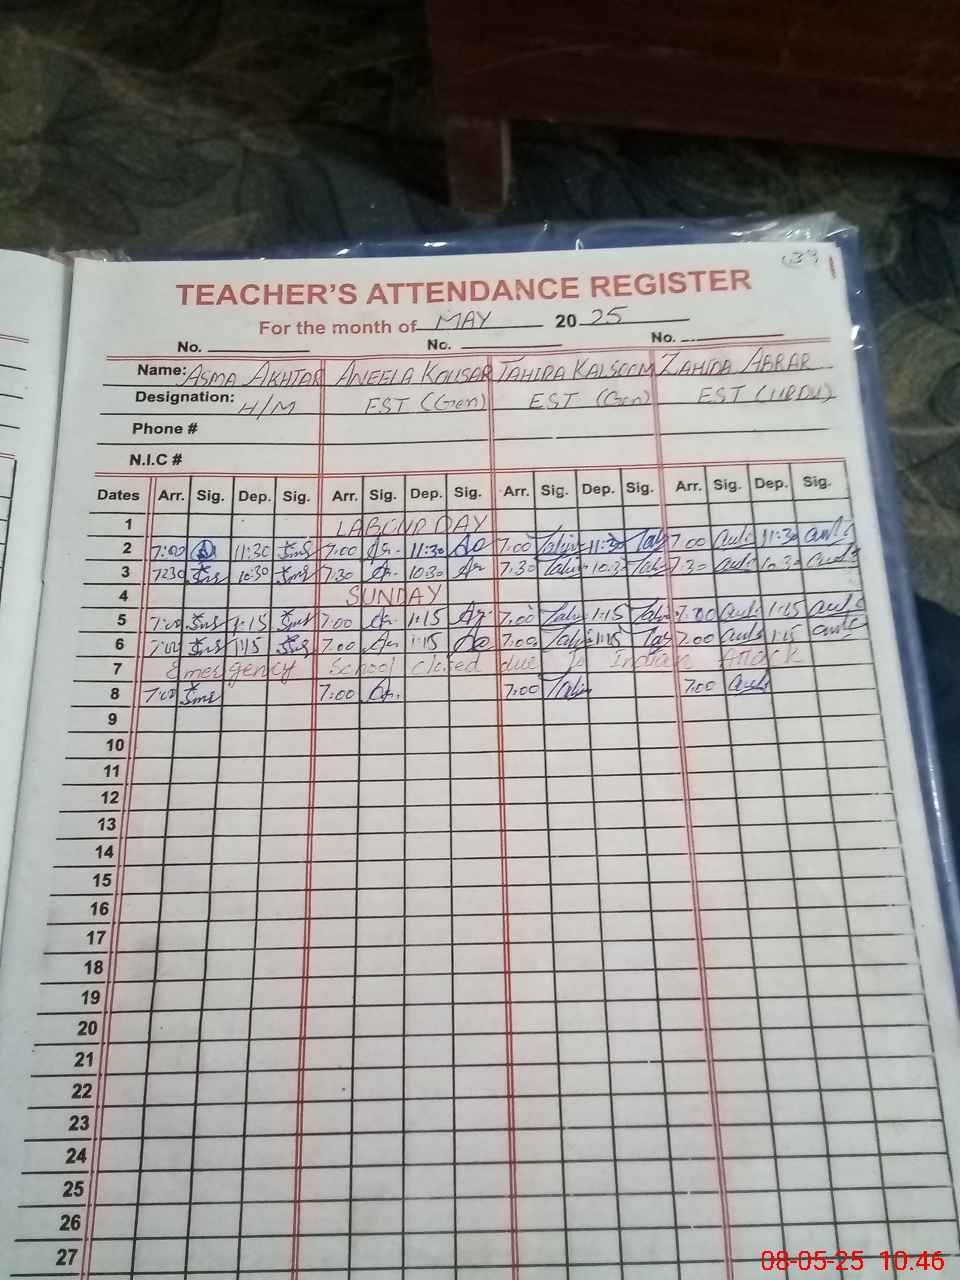 639
TEACHER'S ATTENDANCE REGISTER
For the month of MAY 2025
No. No. No.
Name: ASMA AKHTAR ANEELA KOUSAR TAHIRA KALSOOM ZAHIDA ABRAR
Designation: H/M EST (Gen) EST (Gen) EST (URDU)
Phone #
N.I.C #
Dates Arr. Sig. Dep. Sig. Arr. Sig. Dep. Sig. Arr. Sig. Dep. Sig. Arr. Sig. Dep. Sig.
1 LABOUR DAY
2 7:00 11:30 7:00 11:30 7:00 11:30 7:00 11:30
3 7:30 10:30 7:30 10:30 7:30 10:30 7:30 10:30
4 SUNDAY
5 7:00 1:15 7:00 1:15 7:00 1:15 7:00 1:15
6 7:00 1:15 7:00 1:15 7:00 1:15 7:00 1:15
7 Emergency School closed due to Indian Attack
8 7:00 7:00 7:00 7:00
9
10
11
12
13
14
15
16
17
18
19
20
21
22
23
24
25
26
27
08-05-25 10.46